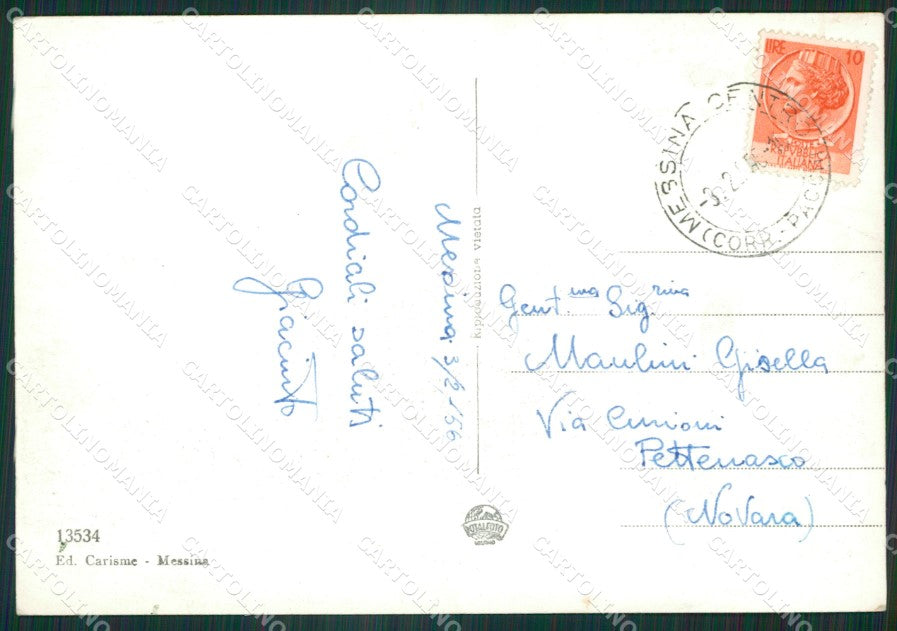 LIRE 10
POSTE
REPVBBLICA
ITALIANA
MESSINA CENTRO
(CORR.-PACCHI)
Messina 3/2-'56
Cordiali saluti
Giacinto
Riproduzione Vietata
Gent.ma Sig.rina
Maulini Gisella
Via
Pettenasco
(Novara)
13534
Ed. Carisme - Messina
CARTOLINOMANIA